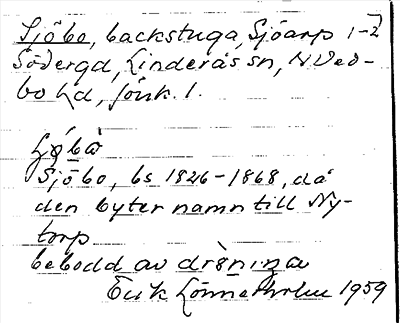 Sjöbo, backstuga, Sjöarp 1-2
Södergd, Linderås sn, N. Ved-
bo hd, Jönk. l.
Sjöbo, bs 1826-1868, då
den byter namn till Ny-
torp
bebodd av
Erik Lönnerholm 1959